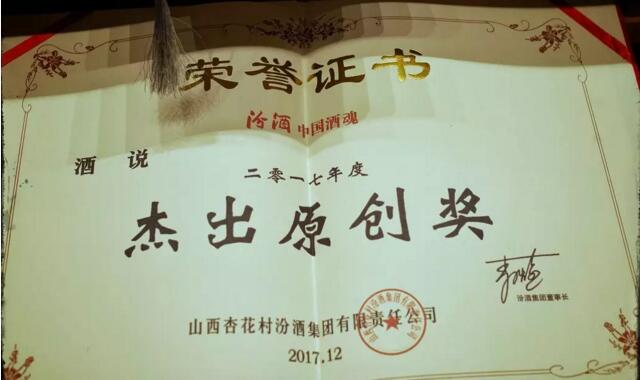 荣誉证书
汾酒 中国酒魂
酒 说
二零一七年度
杰出原创奖
汾酒集团董事长
山西杏花村汾酒集团有限责任公司
2017.12